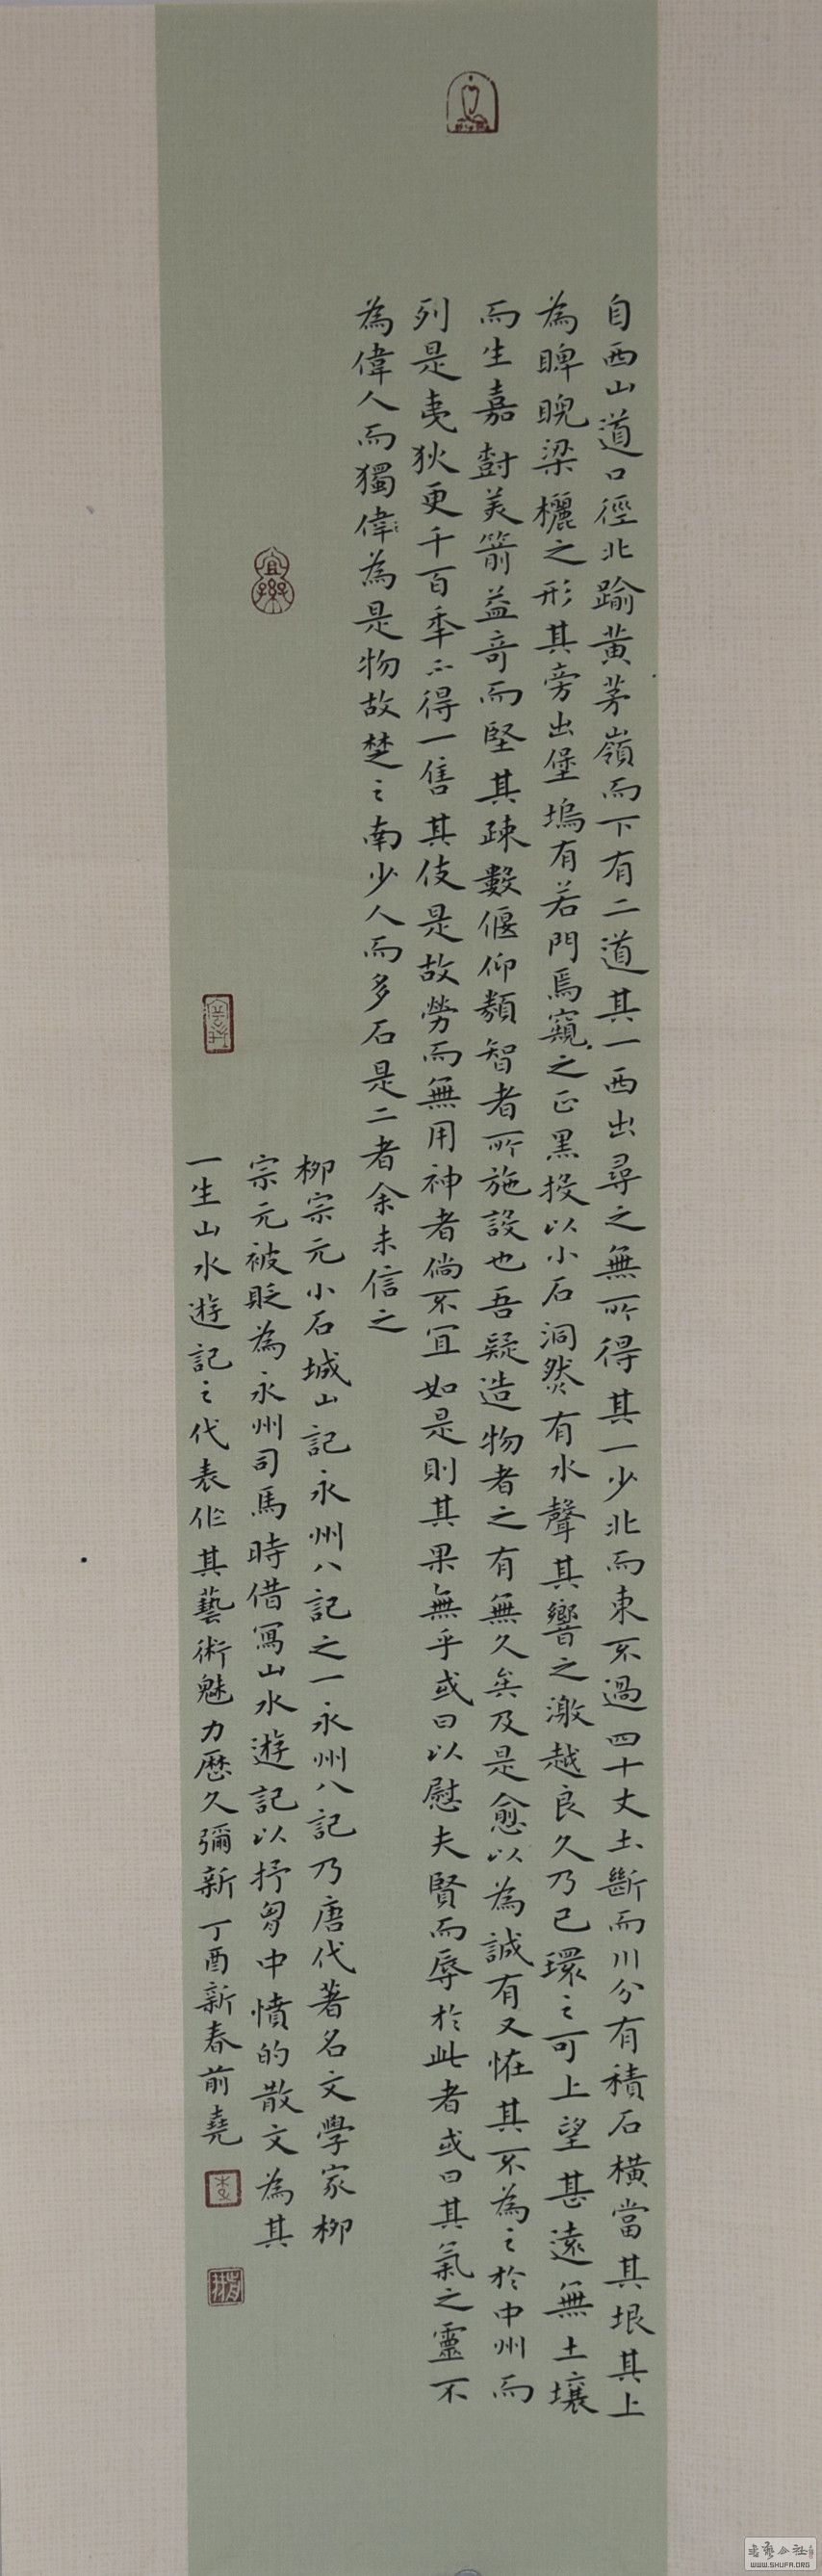 自西山道口徑北踰黃茅嶺而下有二道其一西出尋之無所得其一少北而東不過四十丈土斷而川分有積石橫當其垠其上
為睥睨梁欐之形其旁出堡塢有若門焉窺之正黑投以小石洞然有水聲其響之激越良久乃已環之可上望甚遠無土壤
而生嘉樹美箭益奇而堅其疎數偃仰類智者所施設也吾疑造物者之有無久矣及是愈以為誠有又怪其不為之於中州而
列是夷狄更千百年不得一售其伎是故勞而無用神者倘不宜如是則其果無乎或曰以慰夫賢而辱於此者或曰其氣之靈不
為偉人而獨偉為是物故楚之南少人而多石是二者余未信之
柳宗元小石城山記永州八記之一永州八記乃唐代著名文學家柳
宗元被貶為永州司馬時借寫山水遊記以抒胷中憤的散文為其
一生山水遊記之代表作其藝術魅力歷久彌新丁酉新春前堯
宜樂
书艺公社
WWW.SHUFA.ORG